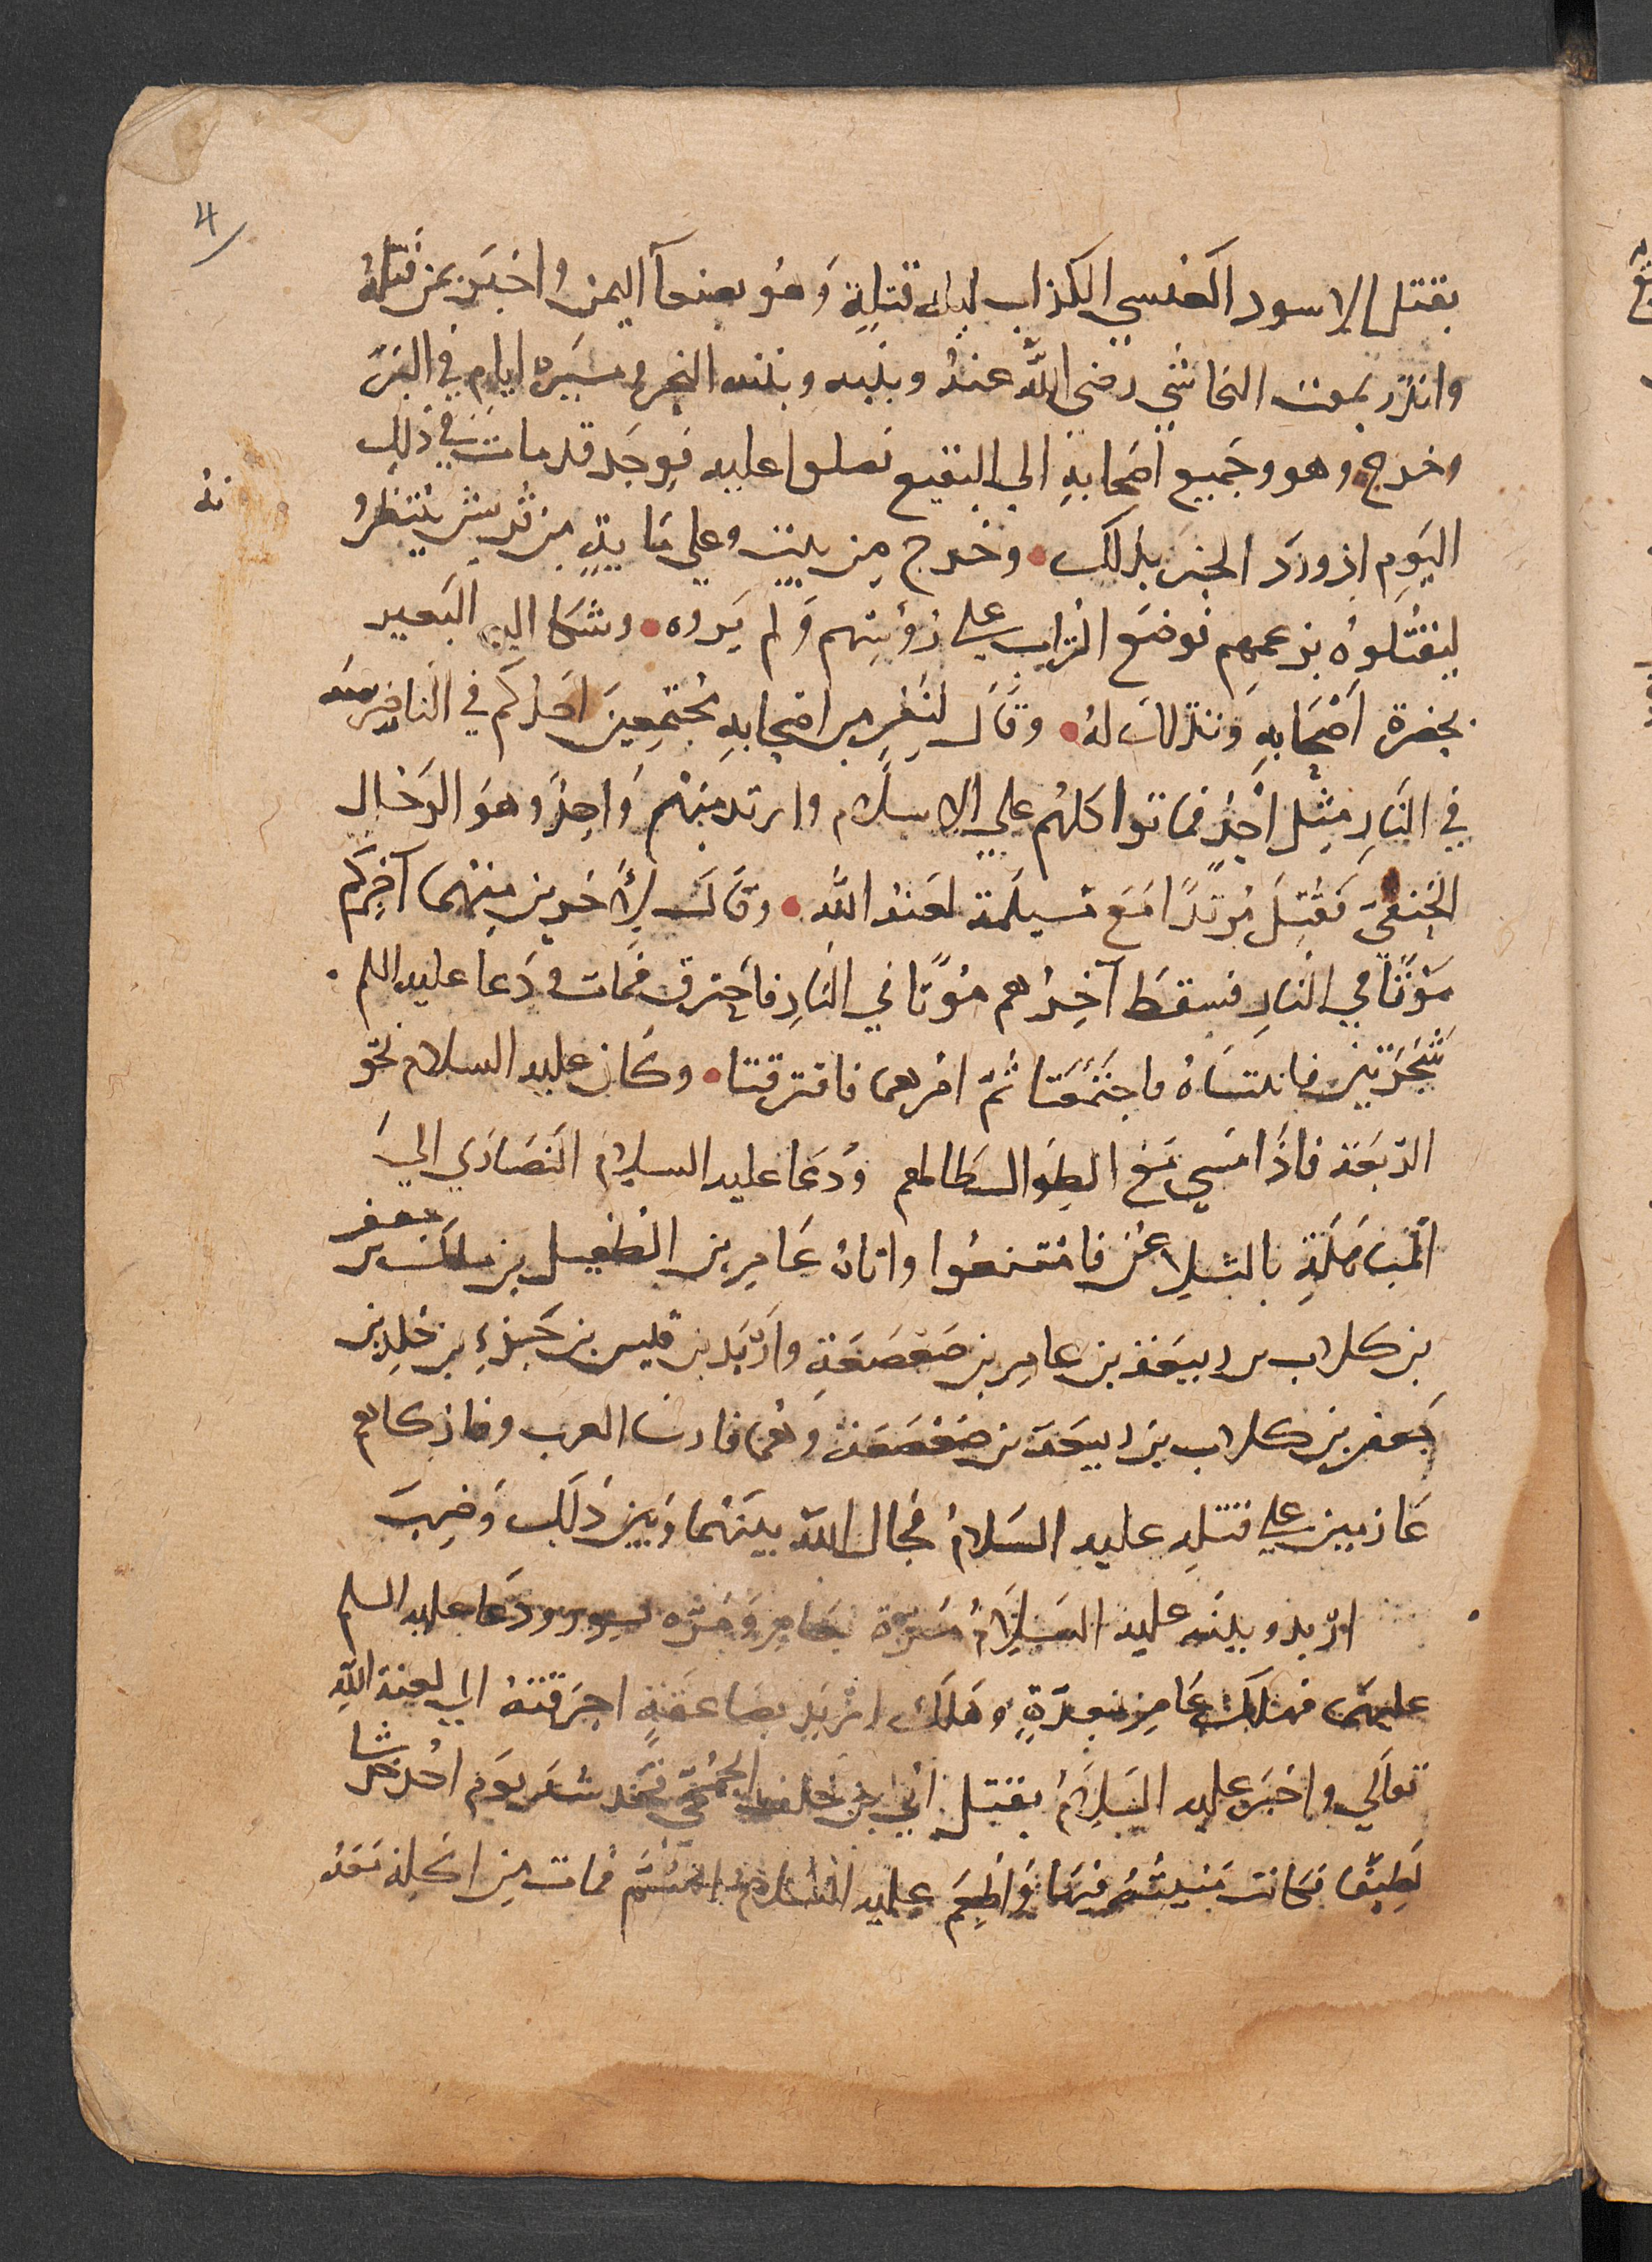 4
بقتل الاسود العنسي الكذاب ليلة قتله وَهُو بصنعآ اليمن واخبَر بمن قَتلهُ
وانذر بموت النجاشي رضي اللّه عنهُ وبَينه وبَينه البحر ومسَيرة ايام في البَرّ
وخرج وهو وجَميع اصْحَابهِ الي البقيع فصلوا عليه فوجَد قد مات في ذلك
اليَومِ اذ ورَد الخبر بذلك • وخرج مِن بيته وعلي بَابهِ مِن قُريش يَنتظرُ
نهُ
ليقتُلوهُ بزعمِهم فوضَع التراب علي رؤسِهم وَلم يَروه • وشكا اليه البَعير
بحضرة اَصْحَابهِ وَتذلل لهُ • وقَالَ لنَفرٍ مِن اصْحابهِ مُجتمِعينَ احَدكم في النار ضرسه
في النارِ مِثل اُحُدٍ فماتوا كلهُم علي الاسلام وارتد مِنهُم وَاحِدٌ وهوَ الرَحال
الحَنفيّ فقُتِلَ مُرتدًا مَعَ مُسيلمَة لعَنهُ اللّه • وقَالَ لأَخَرين مِنهُما آخِركُم
مَوْتًا في النارِ فسقطَ آخِرُهم مَوْتًا في النارِ فاحْترق فمَات ودَعا عليه السلم
شَجَرَتَين فاتتَاهُ واجتَمعَتا ثُمّ امَرهما فافترقتا • وكَان عليه السلام نحو
الرَبعَة فاذَا مشي مَع الطِوال طالهم وَدعَا عليه السلام النَصَاري اليَ
المبَاهَلَةِ بالتلاعُن فامْتنعُوا واتاهُ عَامِر بن الطفيل بن مالك بن جعفر
بن كلاب بن ربيعَة بن عامِر بن صَعْصَعَة وارْبَد بن قيس بن جَزْءِ بن خلدِ بن
جَعفر بن كلاب بن ربيعَة بن صَعْصَعَة وهُمَا فارسَا العرب وفاتكاهم
عَازمين علي قتلِه عليه السَلامُ فحَال اللّه بينهُما وَبين ذَلك وَضرِبَ
اربد وبينه عليه السَلامُ مَرة بعَامِر وَمَرّة بسور ودَعا عليه السلم
عليهما فهلكَ عَامِر بغدّةٍ وَهلكَ اربَد بصَاعقةٍ احرَقتهُ الي لعنة اللّهِ
تعَالي واخبَر عليه السَلامُ بقتل اُبَي بن خلف الجُمَحِيّ فخدشهُ يَوم اُحُد خدشا
لَطِيفًا فكانت مَنيتُهُ فيهَا وَأُطْعِمَ عليه السَلام السُّمّ فمات مِن اكلهُ مَعَهُ